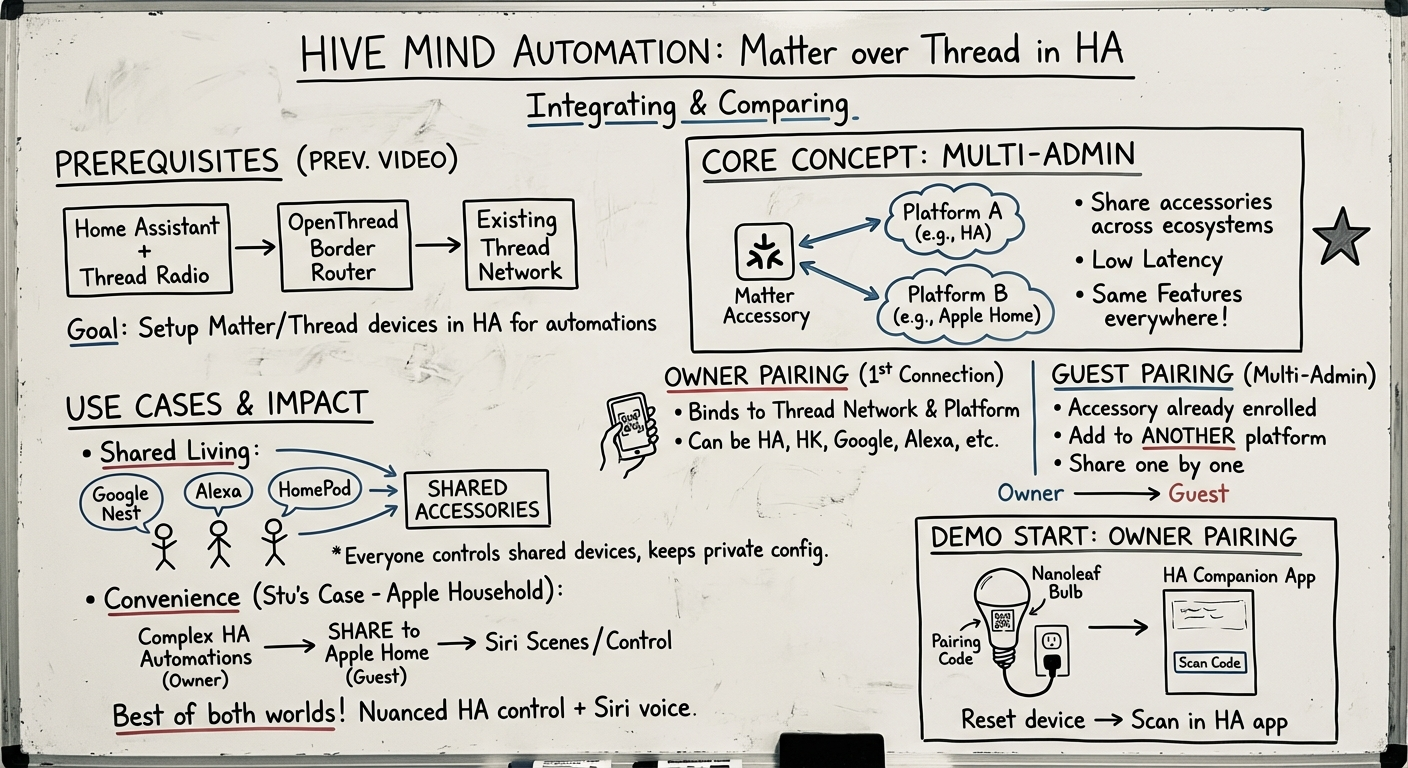 HIVE MIND AUTOMATION: Matter over Thread in HA
Integrating & Comparing.
PREREQUISITES (PREV. VIDEO)
Home Assistant
+
Thread Radio
OpenThread
Border
Router
Existing
Thread
Network
Goal: Setup Matter/Thread devices in HA for automations
CORE CONCEPT: MULTI-ADMIN
Matter
Accessory
Platform A
(e.g., HA)
Platform B
(e.g., Apple Home)
• Share accessories
across ecosystems
• Low Latency
• Same Features
everywhere!
OWNER PAIRING (1st Connection)
• Binds to Thread Network & Platform
• Can be HA, HK, Google, Alexa, etc.
GUEST PAIRING (Multi-Admin)
• Accessory already enrolled
• Add to ANOTHER platform
• Share one by one
Owner → Guest
USE CASES & IMPACT
• Shared Living:
Google
Nest
Alexa
HomePod
SHARED
ACCESSORIES
*Everyone controls shared devices, keeps private config.
• Convenience (Stu's Case - Apple Household):
Complex HA
Automations
(Owner)
SHARE to
Apple Home
(Guest)
Siri Scenes/Control
Best of both worlds! Nuanced HA control + Siri voice.
DEMO START: OWNER PAIRING
Nanoleaf
Bulb
Pairing
Code
HA Companion App
Scan Code
Reset device → Scan in HA app